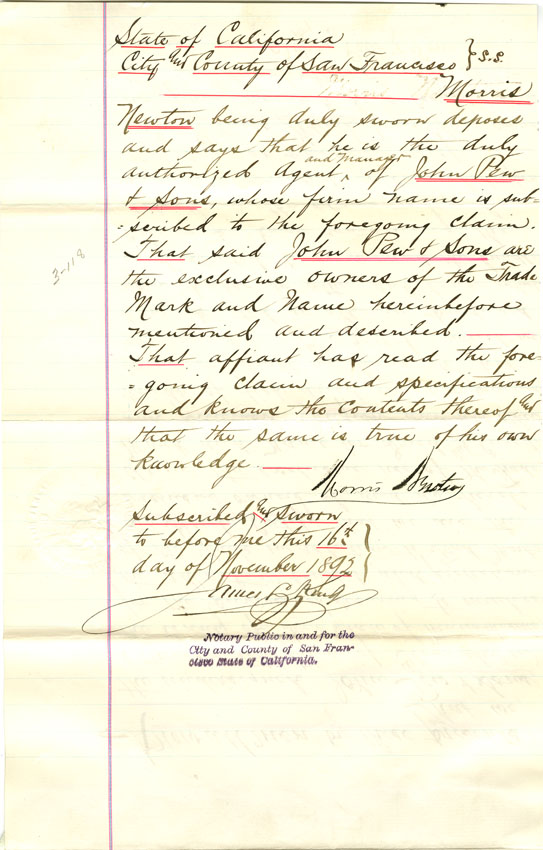 State of California
City and County of San Francisco } S.S.
Morris
Newton being duly sworn deposes
and says that he is the duly
and Manager
authorized Agent, of John Pew
& Sons, whose firm name is sub-
-scribed to the foregoing claim.
That said John Pew & Sons are
the exclusive owners of the Trade
Mark and Name hereinbefore
mentioned and described.
That affiant has read the fore-
-going claim and specifications
and knows the contents thereof and
that the same is true of his own
knowledge.
3-118
Morris Newton
Subscribed and Sworn
to before me this 16th
day of November 1892
Notary Public in and for the
City and County of San Fran-
cisco State of California.